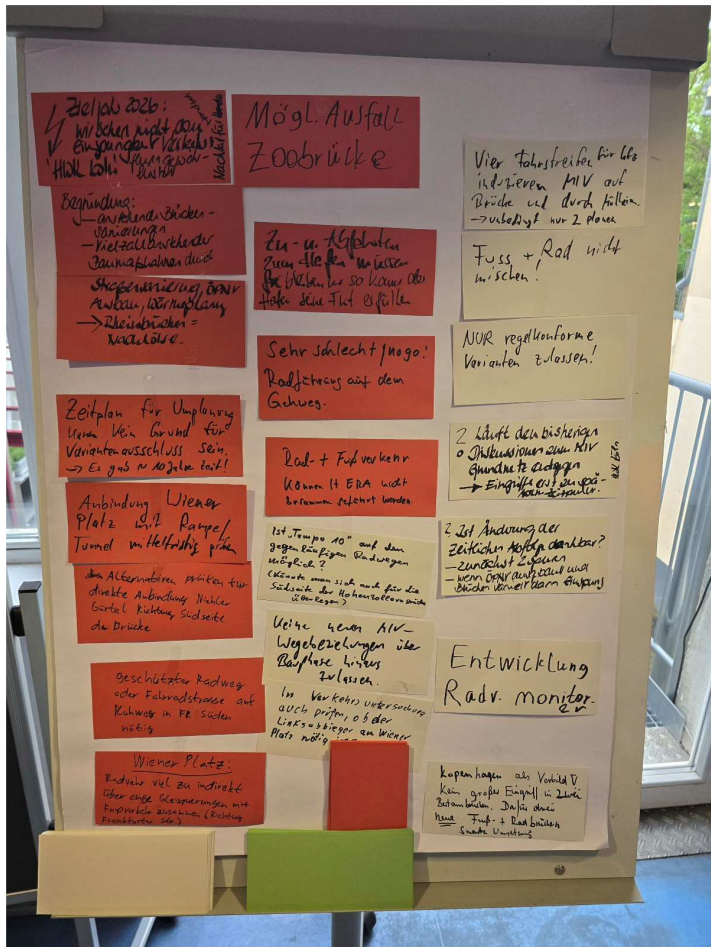 Zieljahr 2026:
wir sehen nicht den
einspurigen Verkehr
Begründung:
- anstehende Brücken-
sanierungen
- Vielzahl anstehender
Baumaßnahmen durch
Straßensanierung, ÖPNV
Ausbau, Wärmeplanung
→ Rheinbrücken =
Zeitplan für Umplanung
kann kein Grund für
Variantenausschluss sein.
→ Es gab ~ 10 Jahre Zeit!
Anbindung Wiener
Platz mit Rampe/
Tunnel mittelfristig prüfen
Alternativen prüfen für
direkte Anbindung Niehler
Gürtel Richtung Südseite
der Brücke
geschützter Radweg
oder Fahrradstrasse auf
Kuhweg in FR Süden
nötig
Wiener Platz:
Radverkehr viel zu indirekt
über enge Gleisquerungen mit
Fußverkehr zusammen (Richtung
Frankfurter Str.)
Mögl. Ausfall
Zoobrücke
Zu- u. Abfahrten
zum Hafen müssen
bleiben nur so kann der
Hafen seine Fkt erfüllen
Sehr schlecht / nogo:
Radführung auf dem
Gehweg.
Rad- + Fußverkehr
können lt ERA nicht
zusammen geführt werden.
Ist "Tempo 10" auf den
gegenläufigen Radwegen
möglich?
(könnte man sich auch für die
Südseite der Hohenzollernbrücke
überlegen)
Keine neuen MIV-
Wegebeziehungen über
Bauphase hinaus
zulassen.
In Verkehrsuntersuchung
auch prüfen, ob der
Linksabbieger am Wiener
Platz nötig
Vier Fahrstreifen für Kfz
induzieren MIV auf
Brücke und durch Mülheim.
→ unbedingt nur 2 planen
Fuss + Rad nicht
mischen!
NUR regelkonforme
Varianten zulassen!
? Läuft den bisherigen
Diskussionen zum MIV
Grundnetz entgegen
→ Eingriff erst zu
? Ist Änderung der
zeitlichen Abfolge denkbar?
- zunächst 2 spuren
- wenn ÖPNV ausgebaut und
Brücken saniert dann Einspurig
Entwicklung
Radv. monitor.
Kopenhagen als Vorbild
Kein großer Eingriff in zwei
Betonbrücken. Dafür drei
neue Fuß- + Radbrücken
Smarte Umsetzung